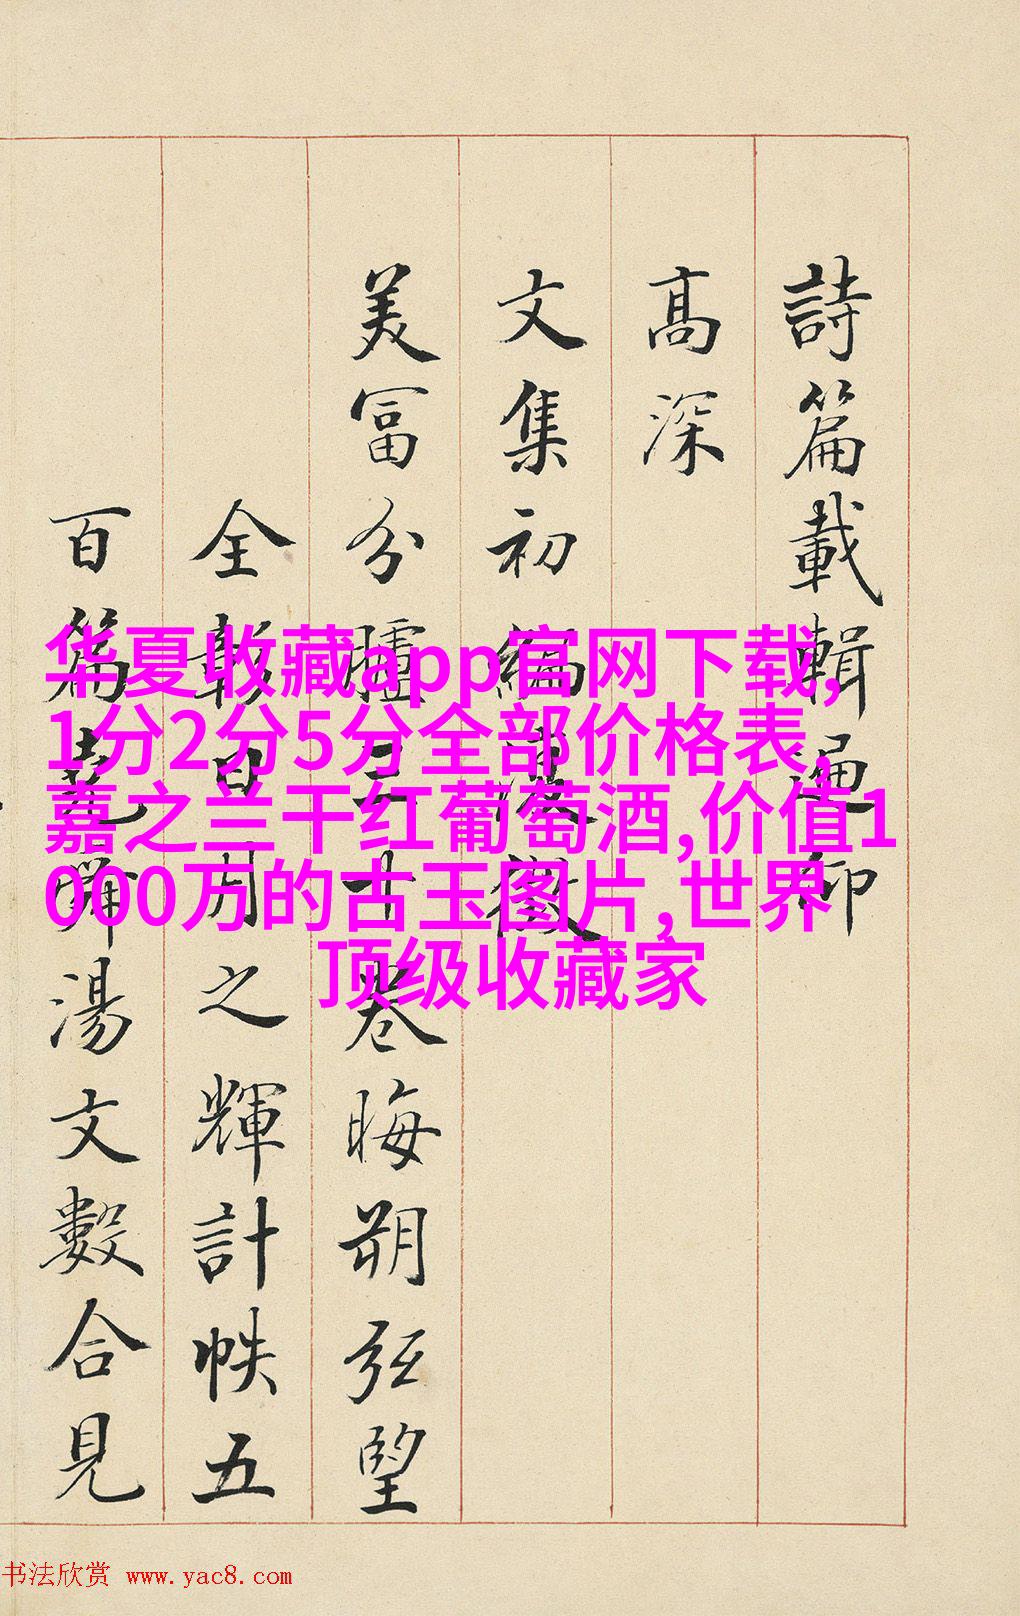 詩篇載輯仰
髙深
文集初編
美冨分臚三十卷晦朔弦望
全彰日月之輝計帙五
百篇堯舜湯文數合見
华夏收藏app官网下载,
1分2分5分全部价格表,
嘉之兰干红葡萄酒,价值1
000万的古玉图片,世界
顶级收藏家
书法欣赏 www.yac8.com